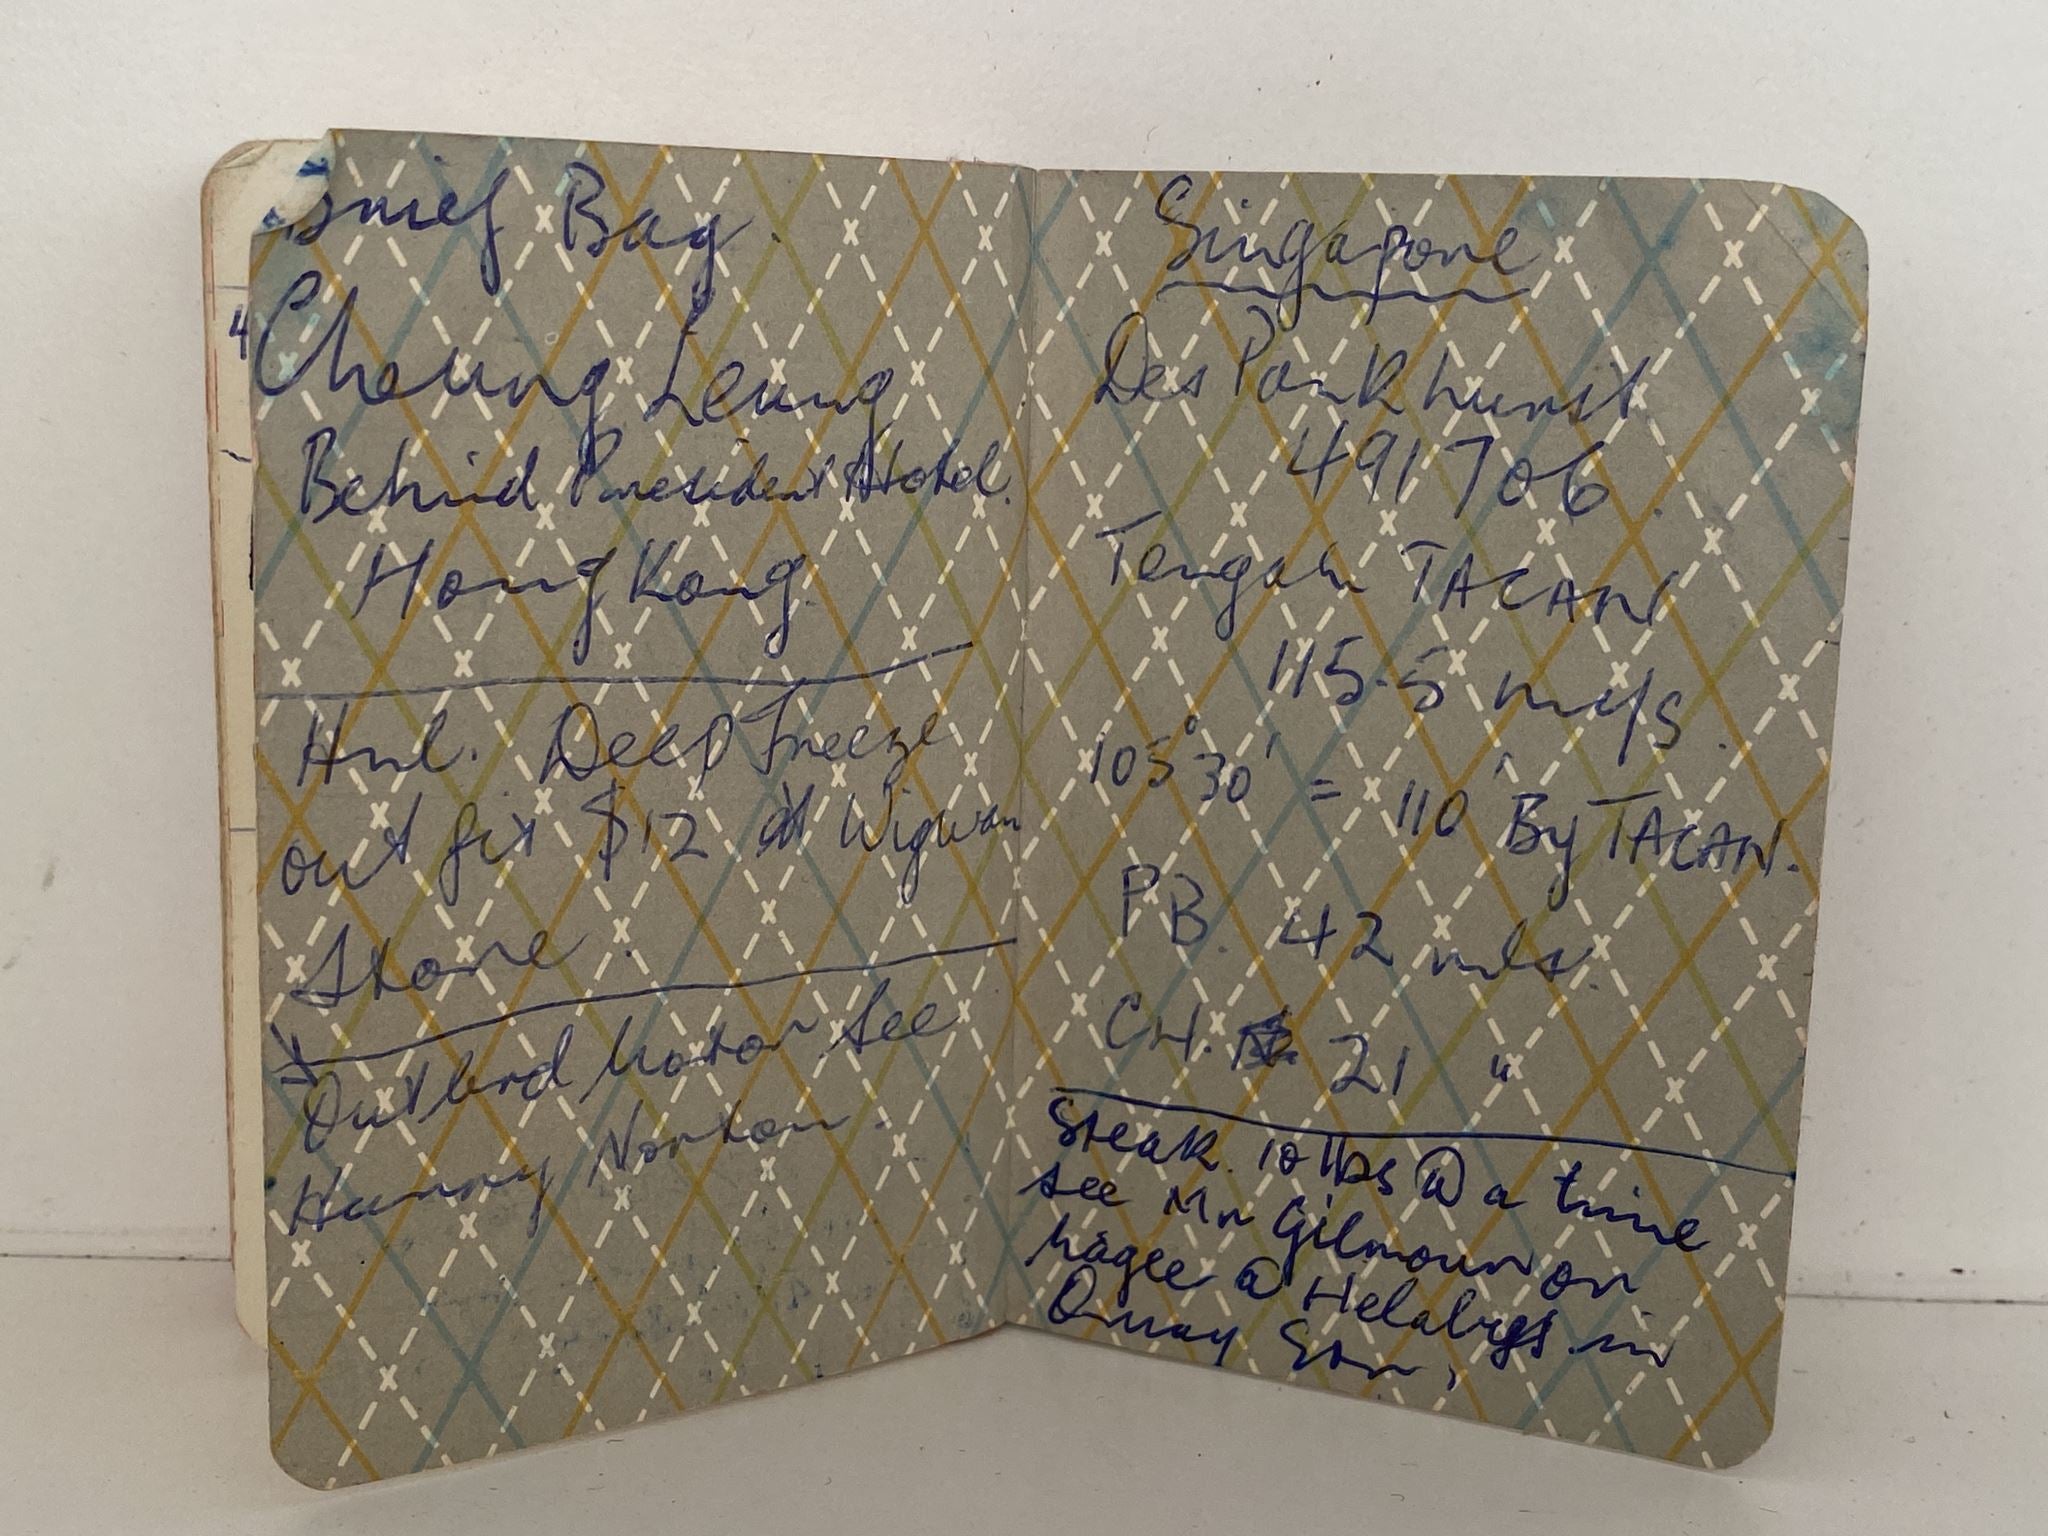 Brief Bag.
Cheung Leung
Behind President Hotel.
Hong Kong.
Hnl. Deep Freeze
out fit $12 at Wigwam
Store.
Outbrd Motor See
Harry Norton.
4
Singapore
Des Pankhurst
491706.
Tengah TACAN
115.5 mc/s.
105°30' = 110' By TACAN.
PB. 42 mls.
CH. 21 "
Steak. 10 lbs @ a time
see Mr Gilmour or
Magee @ Hellabys in
Quay